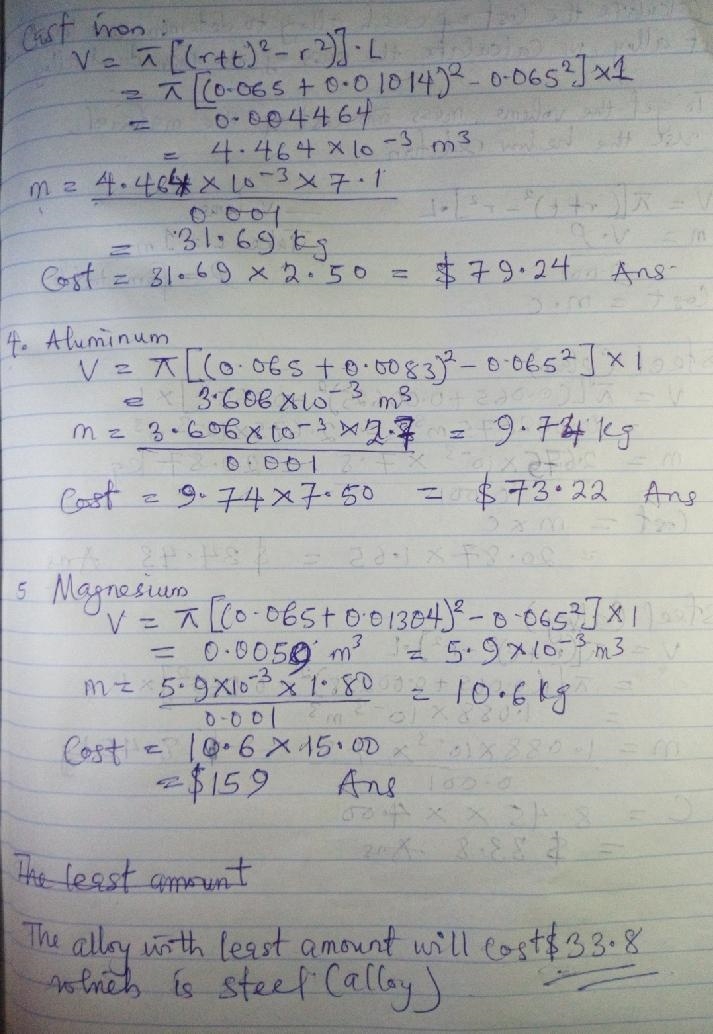 Cast iron :
V = π [(r+t)² - r²)] · L
= π [(0.065 + 0.01014)² - 0.065²] x 1
= 0.004464
= 4.464 x 10⁻³ m³
m = 4.464 x 10⁻³ x 7.1
0.001
= 31.69 kg
Cost = 31.69 x 2.50 = $79.24 Ans-
4. Aluminum
V = π [(0.065 + 0.0083)² - 0.065²] x 1
= 3.606 x 10⁻³ m³
m = 3.606 x 10⁻³ x 2.7 = 9.74 kg
0.001
Cost = 9.74 x 7.50 = $73.22 Ans
5 Magnesium
V = π [(0.065 + 0.01304)² - 0.065²] x 1
= 0.0059 m³ = 5.9 x 10⁻³ m³
m = 5.9 x 10⁻³ x 1.80 = 10.6 kg
0.001
Cost = 10.6 x 15.00
= $159 Ans
The least amount
The alloy with least amount will cost $33.8
which is steel (alloy)